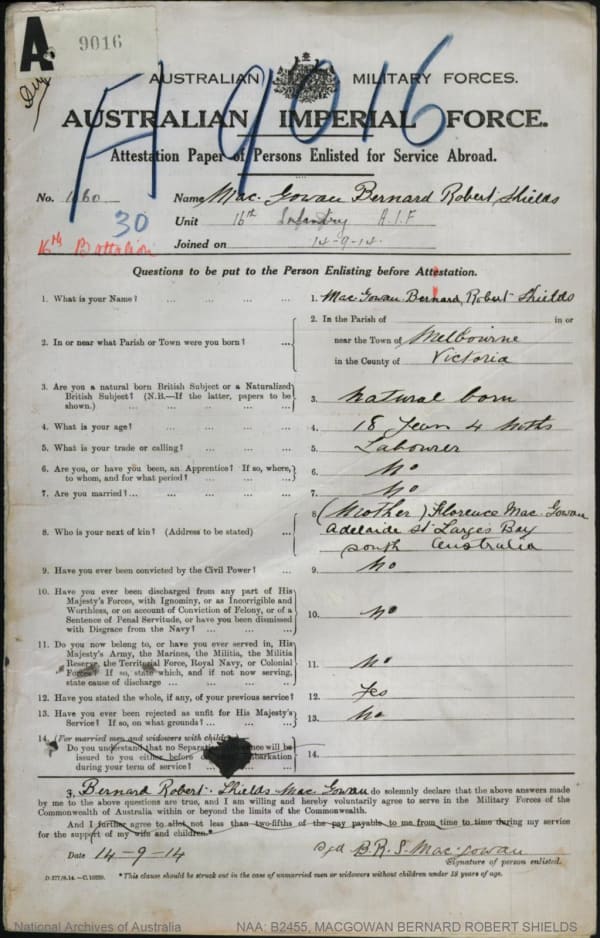 A
9016
A 9016
AUSTRALIAN MILITARY FORCES.
AUSTRALIAN IMPERIAL FORCE.
Attestation Paper of Persons Enlisted for Service Abroad.
No. 1160 Name Mac. Gowan Bernard Robert Shields
30 Unit 16th Infantry A.I.F
16th Battalion Joined on 14-9-14.
Questions to be put to the Person Enlisting before Attestation.
1. What is your Name? ... ... ... ... 1. Mac Gowan Bernard Robert Shields
2. In or near what Parish or Town were you born? ... 2. In the Parish of in or
near the Town of Melbourne
in the County of Victoria
3. Are you a natural born British Subject or a Naturalized
British Subject? (N.B.—If the latter, papers to be
shown.) ... ... ... ... ... 3. Natural born
4. What is your age? ... ... ... ... 4. 18 Years 4 Mths
5. What is your trade or calling? ... ... ... 5. Labourer
6. Are you, or have you been, an Apprentice? If so, where,
to whom, and for what period? ... ... ... 6. No
7. Are you married?... ... ... ... ... 7. No
8. Who is your next of kin? (Address to be stated) ... 8 (Mother) Florence Mac. Gowan
Adelaide St Largs Bay
South Australia
9. Have you ever been convicted by the Civil Power? ... 9. No
10. Have you ever been discharged from any part of His
Majesty's Forces, with Ignominy, or as Incorrigible and
Worthless, or on account of Conviction of Felony, or of a
Sentence of Penal Servitude, or have you been dismissed
with Disgrace from the Navy? ... ... ... 10. No
11. Do you now belong to, or have you ever served in, His
Majesty's Army, the Marines, the Militia, the Militia
Reserve, the Territorial Force, Royal Navy, or Colonial
Forces? If so, state which, and if not now serving,
state cause of discharge ... ... ... ... 11. No
12. Have you stated the whole, if any, of your previous service? 12. Yes
13. Have you ever been rejected as unfit for His Majesty's
Service? If so, on what grounds? ... ... ... 13. No
14. (For married men and widowers with
Do you understand that no Separation will be
issued to you either before or
during your term of service? ... 14.
I, Bernard Robert Shields Mac. Gowan do solemnly declare that the above answers made
by me to the above questions are true, and I am willing and hereby voluntarily agree to serve in the Military Forces of the
Commonwealth of Australia within or beyond the limits of the Commonwealth.
And I further agree to allot not less than two-fifths of the pay payable to me from time to time during my service
for the support of my wife and children.*
Date 14-9-14 Sgd B.R.S. Mac. Gowan
Signature of person enlisted.
*This clause should be struck out in the case of unmarried men or widowers without children under 18 years of age.
National Archives of Australia NAA: B2455, MACGOWAN BERNARD ROBERT SHIELDS